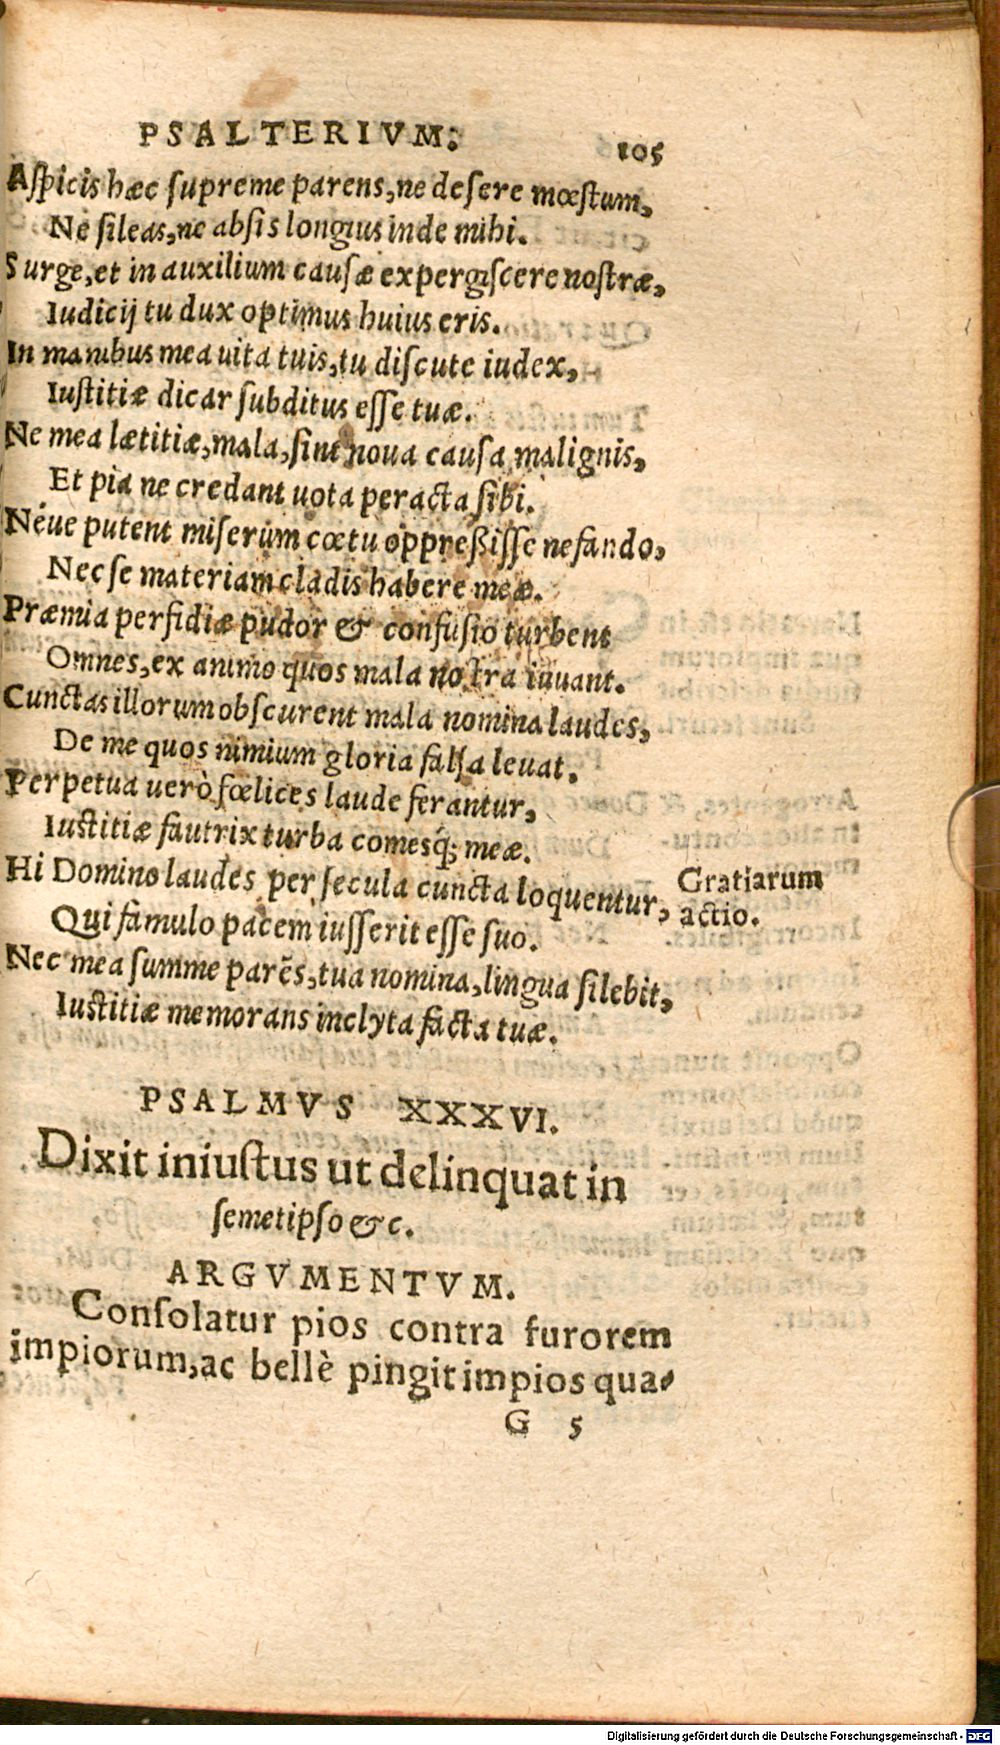 PSALTERIVM.
105
Aſpicis hæc ſupreme parens, ne deſere mœſtum,
Ne ſileas, ne abſis longius inde mihi.
Surge, et in auxilium cauſæ expergiſcere noſtræ,
Iudicij tu dux optimus huius eris.
In manibus mea uita tuis, tu diſcute iudex,
Iuſtitiæ dicar ſubditus eſſe tuæ.
Ne mea lætitiæ, mala, ſint noua cauſa malignis,
Et pia ne credant uota peracta ſibi.
Néue putent miſerum cœtu oppreßiſſe nefando,
Nec ſe materiam cladis habere meæ.
Præmia perfidiæ pudor & confuſio turbent
Omnes, ex animo quos mala noſtra iuuant.
Cunctas illorum obſcurent mala nomina laudes,
De me quos nimium gloria falſa leuat.
Perpetua uerò fœlices laude ferantur,
Iuſtitiæ fautrix turba comesq́; meæ.
Hi Domino laudes per ſecula cuncta loquentur,
Gratiarum
actio.
Qui famulo pacem iuſſerit eſſe ſuo.
Nec mea ſumme parẽs, tua nomina, lingua ſilebit,
Iuſtitiæ memorans inclyta facta tuæ.
PSALMVS XXXVI.
Dixit iniuſtus ut delinquat in
ſemetipſo &c.
ARGVMENTVM.
Conſolatur pios contra furorem
impiorum, ac bellè pingit impios qua-
G 5
Digitalisierung gefördert durch die Deutsche Forschungsgemeinschaft - DFG